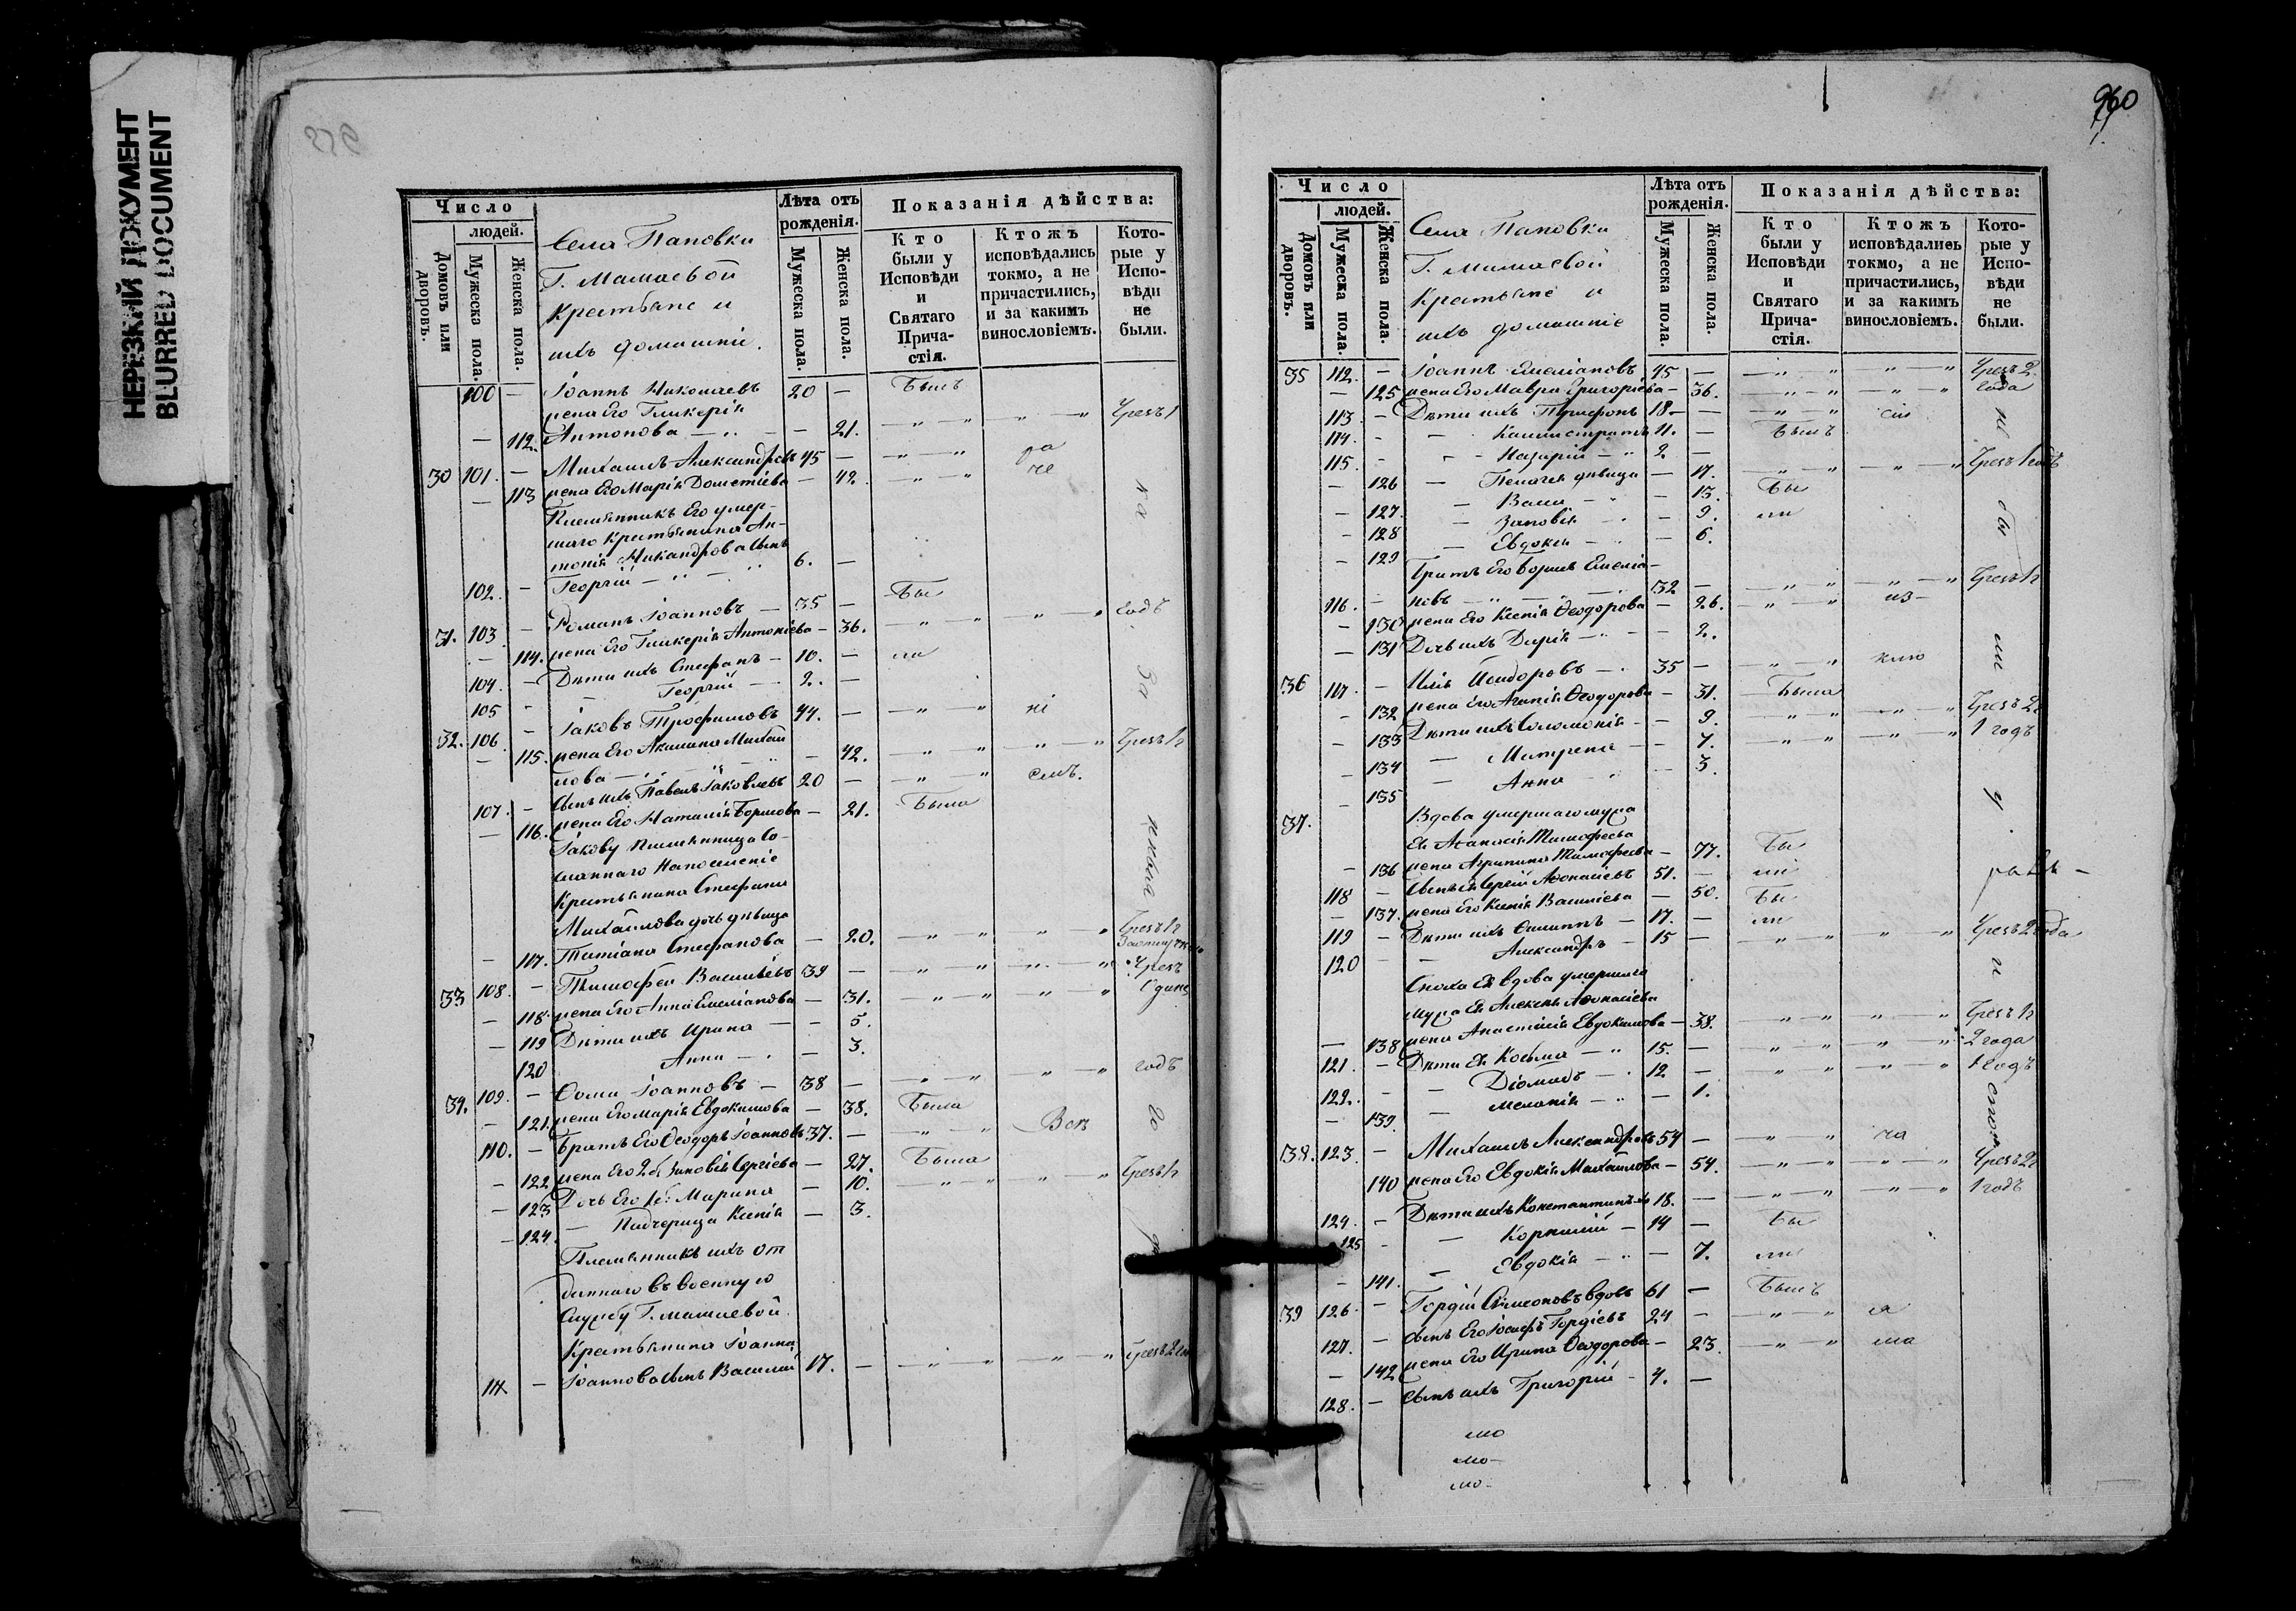 НЕРЕЗКИЙ ДОКУМЕНТ
BLURRED DOCUMENT
Число
людей.
Домовъ или дворовъ.
Мужеска пола.
Женска пола.
Села Пановки
Г. Мамаевой
Крестьяне и
ихъ домашніе.
Лѣта отъ рожденія.
Мужеска пола.
Женска пола.
Показанія дѣйства:
Кто были у Исповѣди и Святаго Причастія.
Ктожъ исповѣдались токмо, а не причастились, и за какимъ винословіемъ.
Которые у Исповѣди не были.
100 — Іоаннъ Николаевъ 20 — Былъ
жена Его Гликерія
— 112. Антонова — — 21. — „ — „ „ — „ Чрезъ 1
30 101. — Михаилъ Александровъ 45 — „ — „
— 113 жена Его Марія Дометіева — 42. — „ — „
Племянникъ Его умер-
шаго Крестьянина Ан-
тонія Никандрова сынъ
102. — Георгій — 6. —
31. 103 — Романъ Іоанновъ — 35 — Бы
— 114. жена Его Гликерія Антоніева — 36. — „ — „ „ — „ годъ
104. — Дѣти ихъ Стефанъ — 10. — ли
105 - — Георгій — 2. —
32. 106 — Іаковъ Трофимовъ 44. — — „ — „
— 115. жена Его Акилина Михай
лова — — 42. — „ — „ „ — „
107. — Сынъ ихъ Павелъ Іаковлевъ 20 — — „ — „
— 116. жена Его Наталія Борисова — 21. Была
Іакову племянница Со-
сланнаго На поселеніе
Крестьянина Стефана
Михайлова дочь дѣвица
— 117. Татіана Стефанова — 20. — „ — „ „ — „
33 108. — Тимофей Васильевъ 39 — — „ — „ „ — „ Чрезъ
— 118. жена Его Анна Емеліанова — 31. — „ — „ „ — „ Одинъ
— 119 Дѣти ихъ Ирина — — 5.
120 Анна — — 3.
34. 109. — Ѳома Іоанновъ — 38 — — „ — „ „ — „ годъ
— 121. жена Его Марія Евдокимова — 38. Была
110. — Братъ Его Ѳеодоръ Іоанновъ 37. — — „ — „
— 122 жена Его 2 б. Зиновія Сергіева — 27. Была
— 123 Дочь Его 1 б: Марина — 10. — „ — „ „ — „
— 124. — Падчерица Ксенія — 3.
Племянникъ ихъ от
даннаго въ военную
Службу Г. Мамаевой
Крестьянина Іоанна
111 — Іоаннова сынъ Василій 17. — — „ — „ — „ — „
960
Число
людей.
Домовъ или дворовъ.
Мужеска пола.
Женска пола.
Села Пановки
Г. Мамаевой
Крестьяне и
ихъ домашніе
Лѣта отъ рожденія.
Мужеска пола.
Женска пола.
Показанія дѣйства:
Кто были у Исповѣди и Святаго Причастія.
Ктожъ исповѣдались токмо, а не причастились, и за какимъ винословіемъ.
Которые у Исповѣди не были.
35 112. — Іоаннъ Емеліановъ 45 — — „ — „ „ — „ Чрезъ 2.
— 125 жена Его Мавра Григоріева — 36. — „ — „ „ — „ года
113. - Дѣти ихъ Трифонъ 18 — — „ — „
114. - — Каллистратъ 11. — Былъ
115. - — Назарій — 2 —
— 126 — Пелагія дѣвица — 17. — „ — „ — „ — „ Чрезъ 1 годъ
— 127. — Васса — 13. Бы
— 128 — Зиновія — 9. ли
— 129 — Евдокія — 6.
Братъ Его Борисъ Емеліа-
116. - новъ — 32 — — „ — „ — „ — „
— 130 жена Его Ксенія Ѳеодорова — 26. — „ — „
— 131 Дочь ихъ Дарія — — 2.
36 117. — Илія Исидоровъ — 35 — — „ — „
— 132 жена Его Агапія Ѳеодорова — 31. Была
— 133 Дѣти ихъ Соломонія — — 9. — „ — „ — „ — „
— 134 — Матрена — — 7. — „ — „ — „ — „ 1 годъ
— 135 — Анна — 3.
37. Вдова умершаго мужа
Ея Аѳанасія Тимофеева
— 136 жена Агрипина Тимофеева — 77. Бы
118 — Сынъ Ея Сергій Аѳонасіевъ 51. — ли
— 137. жена Его Ксенія Василіева — 50. Бы
119 — Дѣти ихъ Филиппъ — 17. — ли
120 — Александръ — 15 — — „ — „ „ — „ Чрезъ 2 года
Сноха Ея вдова умершаго
мужа Ея Алексѣя Аѳонасіева
— 138 жена Анастасія Евдокимова — 38. — „ — „ „ — „
121. — Дѣти Ея Косьма — 15. — — „ — „ „ — „ 2 года
122. - — Діомидъ — 12 — — „ — „ „ — „ 1 годъ
— 139. — Меланія — — 1.
38. 123. — Михаилъ Александровъ 54 — — „ — „
140 жена Его Евдокія Михайлова — 54. — „ — „ „ — „
124. — Дѣти ихъ Константинъ 18. — — „ — „ „ — „ 1 годъ
125 - — Корнилій — 14 — Бы
— 141. — Евдокія — — 7. ли
39 126. — Гордій Симеоновъ вдовъ 61 — Былъ
127. — Сынъ Его Іосифъ Гордіевъ 24 — — „ — „
— 142 жена Его Ирина Ѳеодорова — 23. — „ — „
128. — Сынъ ихъ Григорій — 4. —